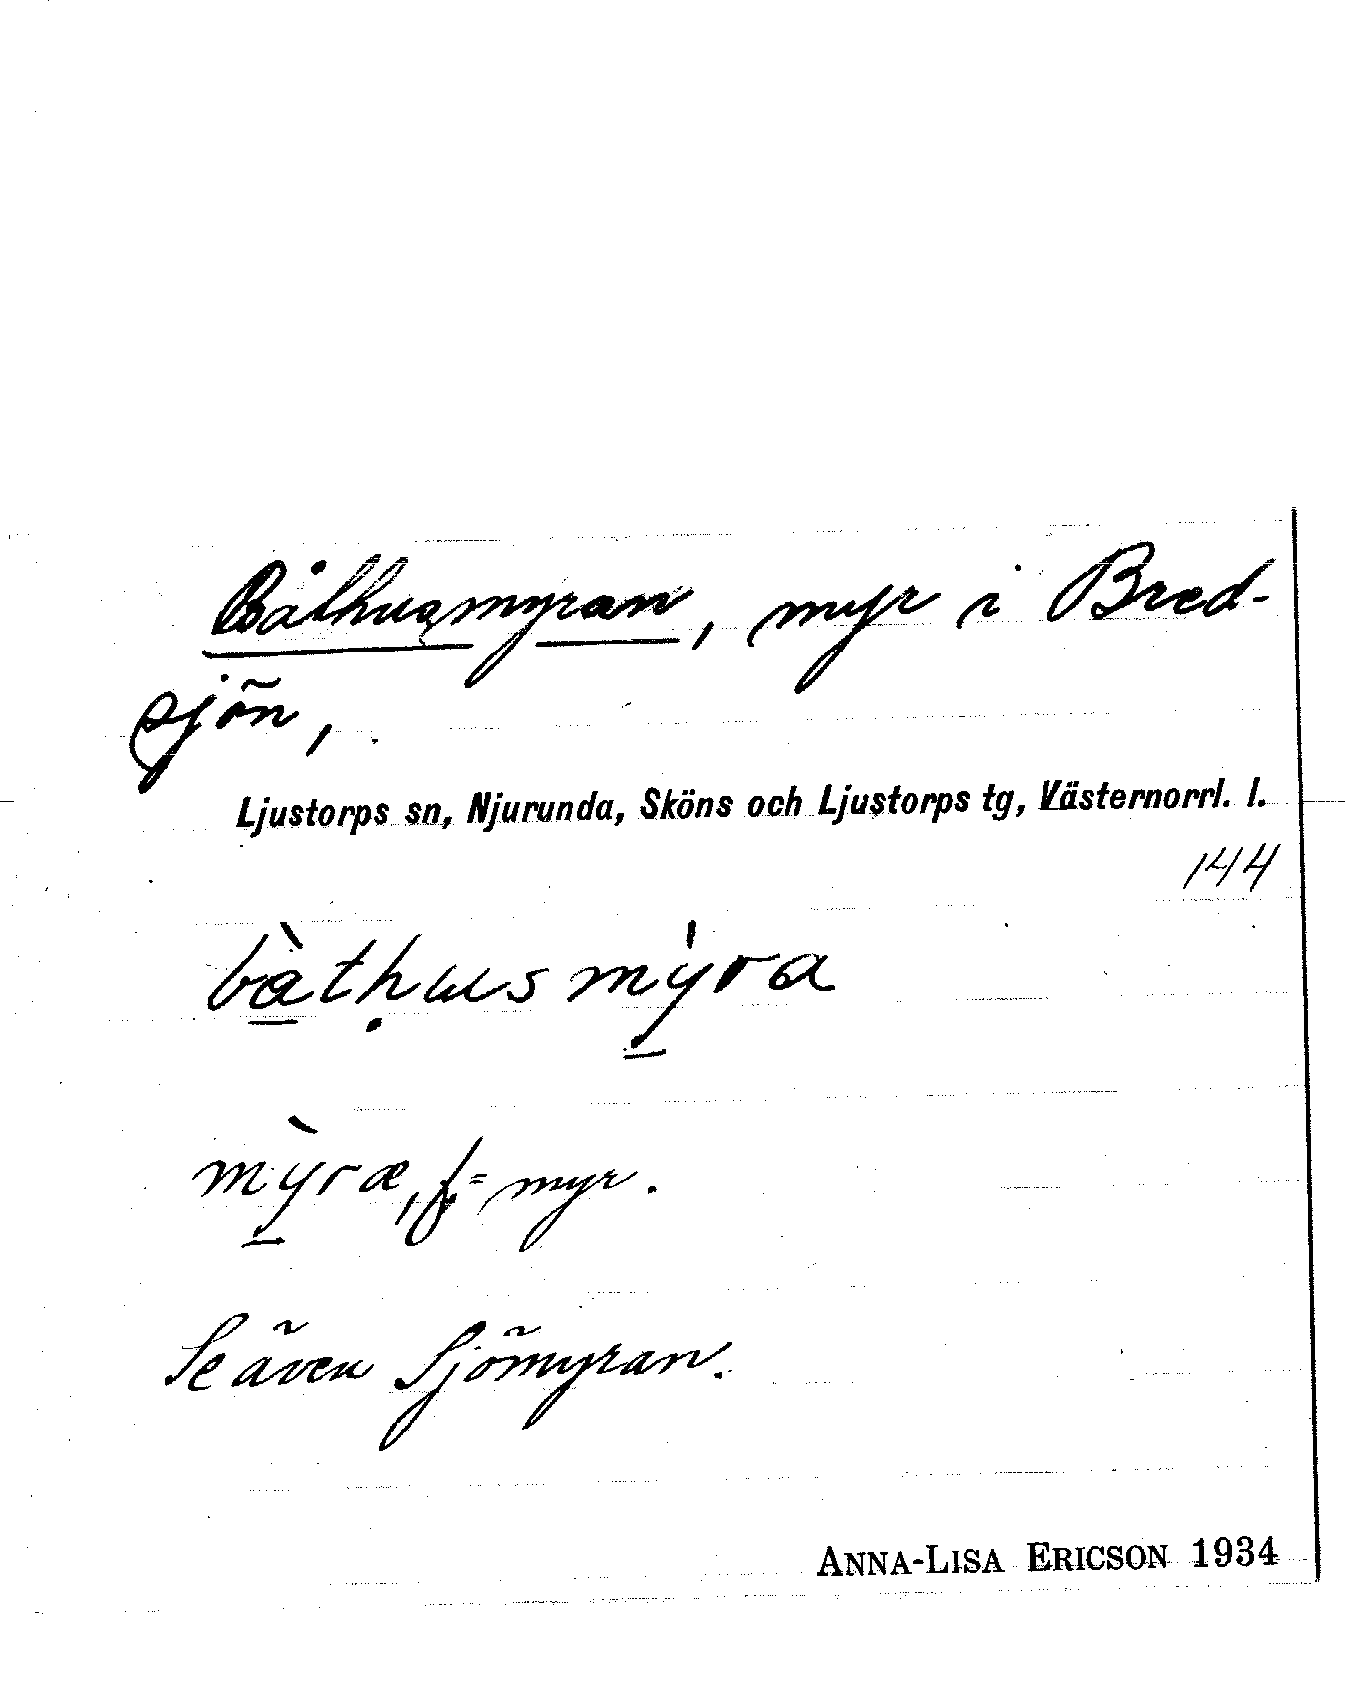 Båthusmyran, myr i Bred-
sjön,
Ljustorps sn, Njurunda, Sköns och Ljustorps tg, Västernorrl. l.
144
bàtḥusmy̍ra
mỳræ, f = myr.
Se även Sjömyran.
ANNA-LISA ERICSON 1934